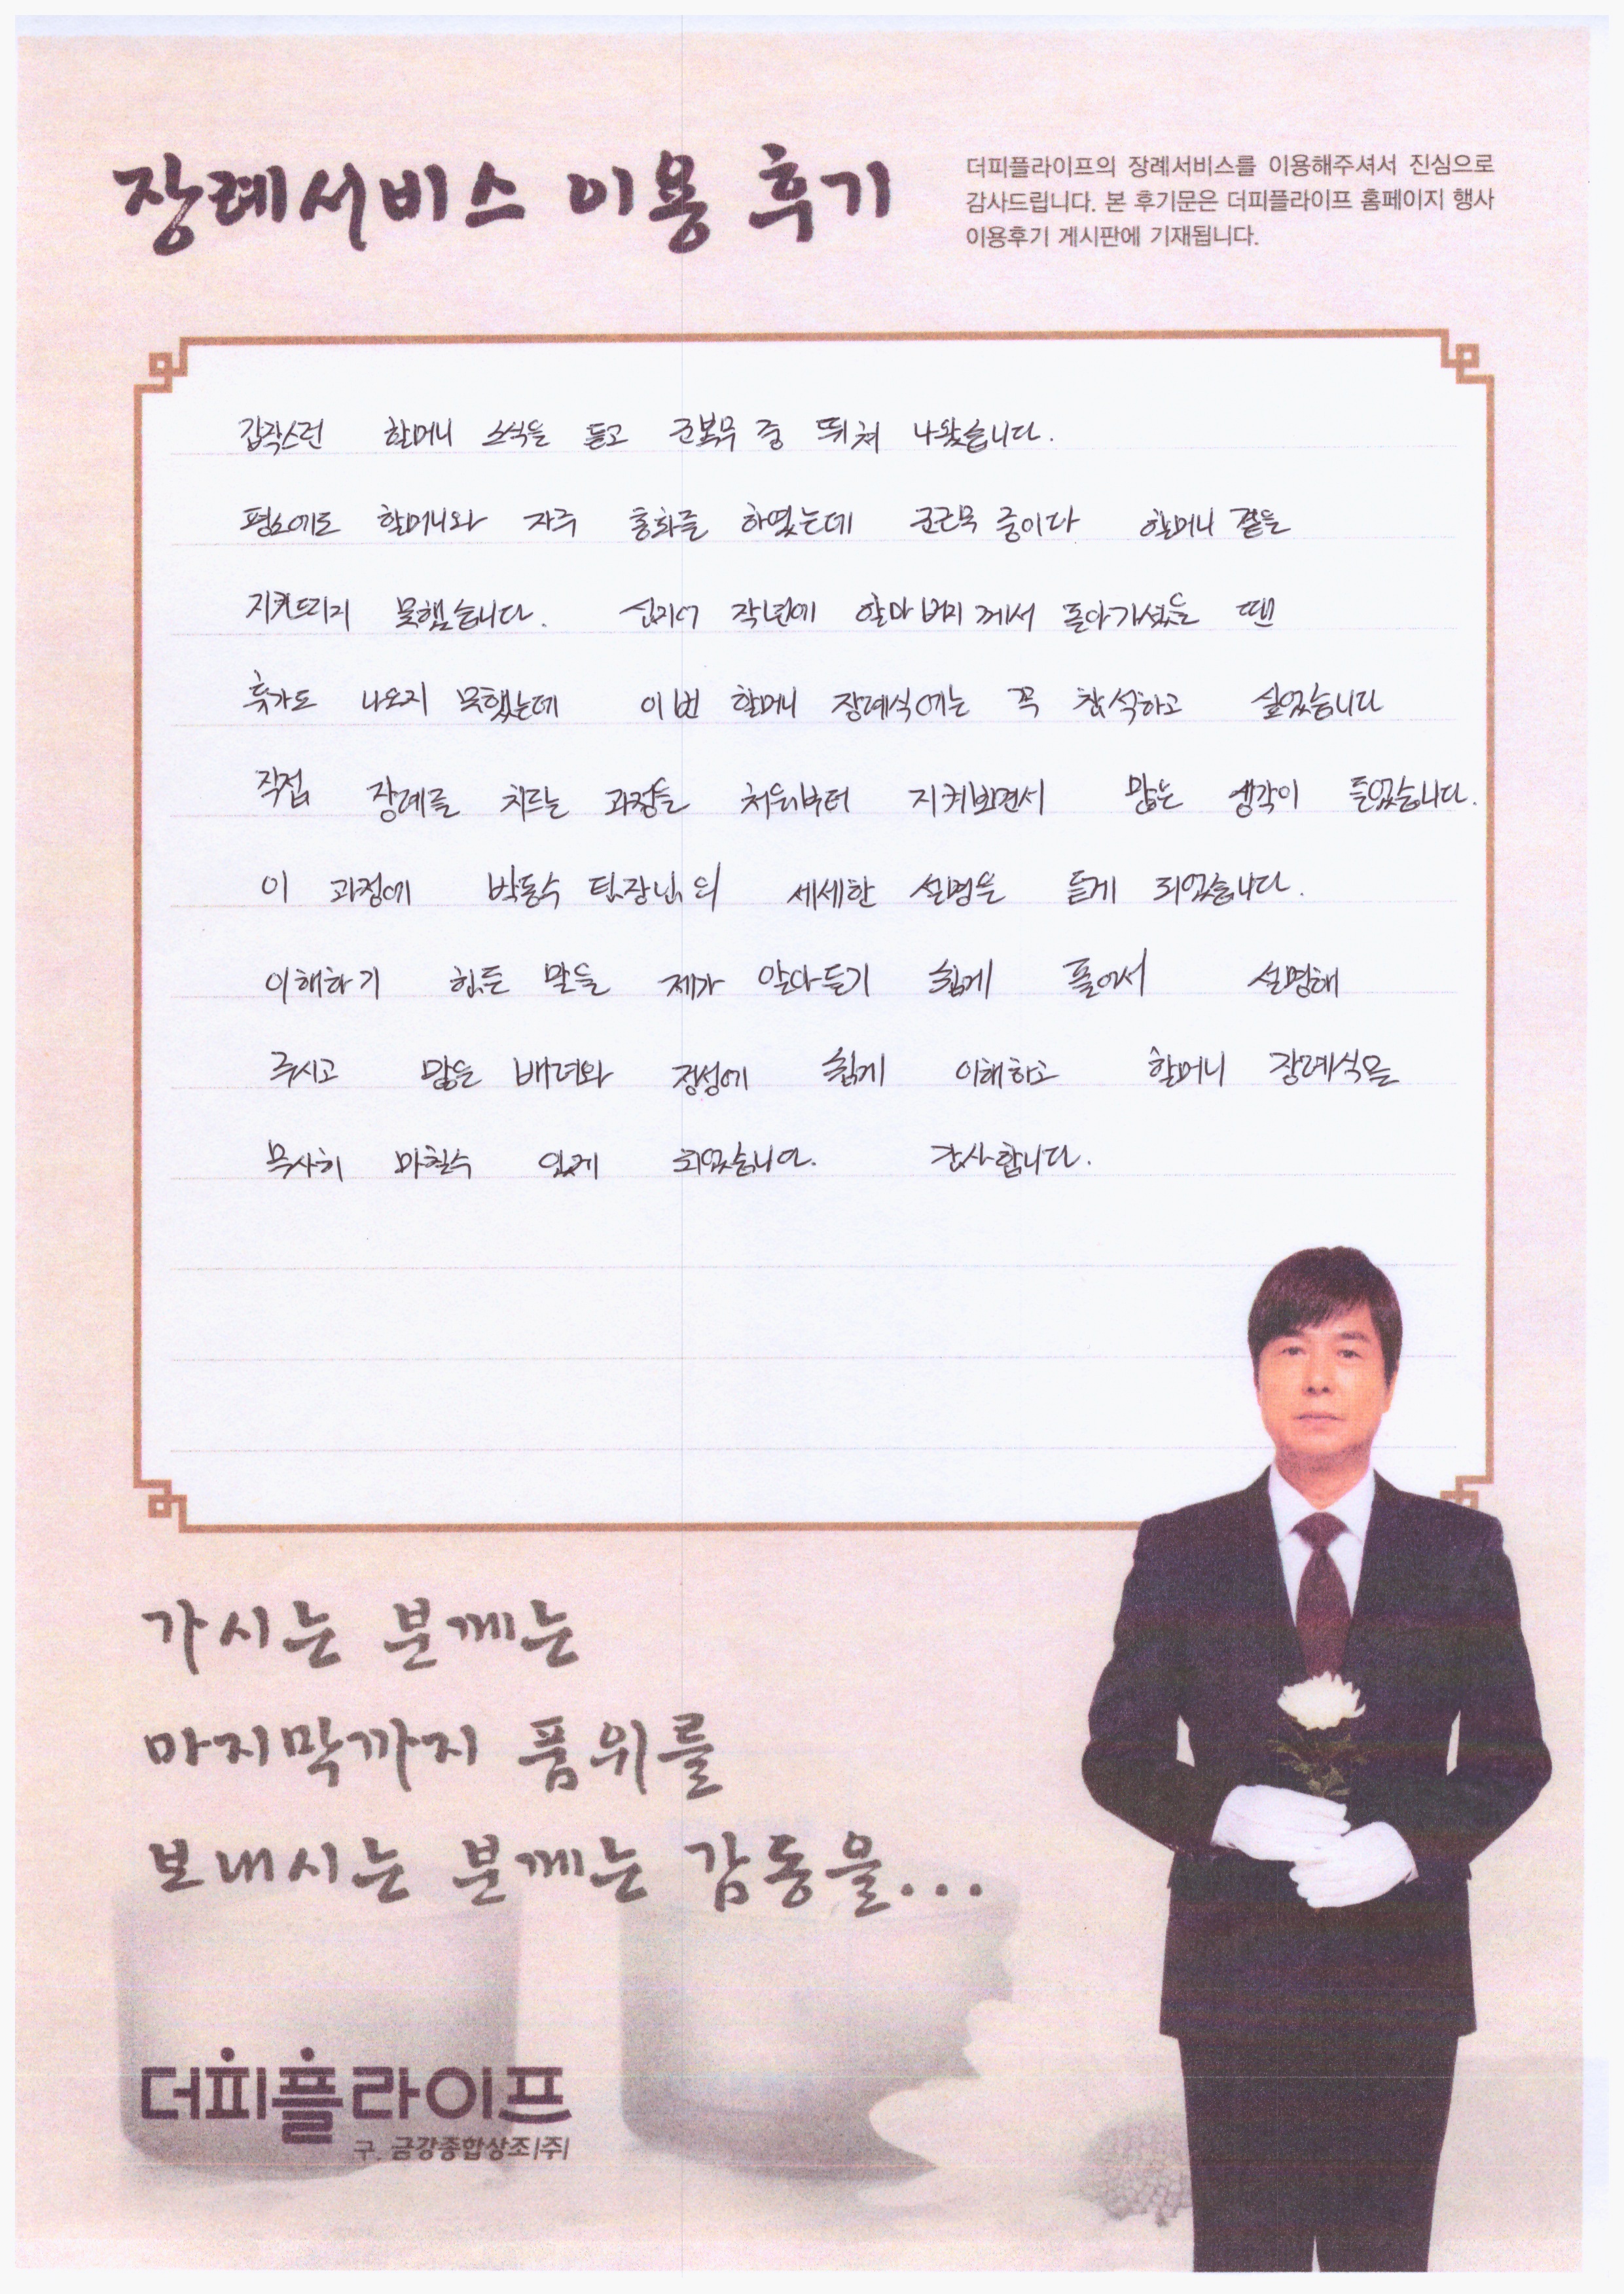 장례서비스 이용 후기
더피플라이프의 장례서비스를 이용해주셔서 진심으로
감사드립니다. 본 후기문은 더피플라이프 홈페이지 행사
이용후기 게시판에 기재됩니다.
갑작스런 할머니 소식을 듣고 군복무 중 뛰쳐 나왔습니다.
평소에도 할머니와 자주 통화를 하였는데 군근무 중이다 할머니 곁을
지켜드리지 못했습니다. 심지어 작년에 할아버지께서 돌아가셨을 땐
휴가도 나오지 못했는데 이번 할머니 장례식에는 꼭 참석하고 싶었습니다
직접 장례를 치르는 과정을 처음부터 지켜보면서 많은 생각이 들었습니다.
이 과정에 박동수 팀장님의 세세한 설명을 듣게 되었습니다.
이해하기 힘든 말들 제가 알아듣기 쉽게 풀어서 설명해
주시고 많은 배려와 정성에 쉽게 이해하고 할머니 장례식을
무사히 마칠수 있게 되었습니다. 감사합니다.
가시는 분께는
마지막까지 품위를
보내시는 분께는 감동을...
더피플라이프
구. 금강종합상조(주)